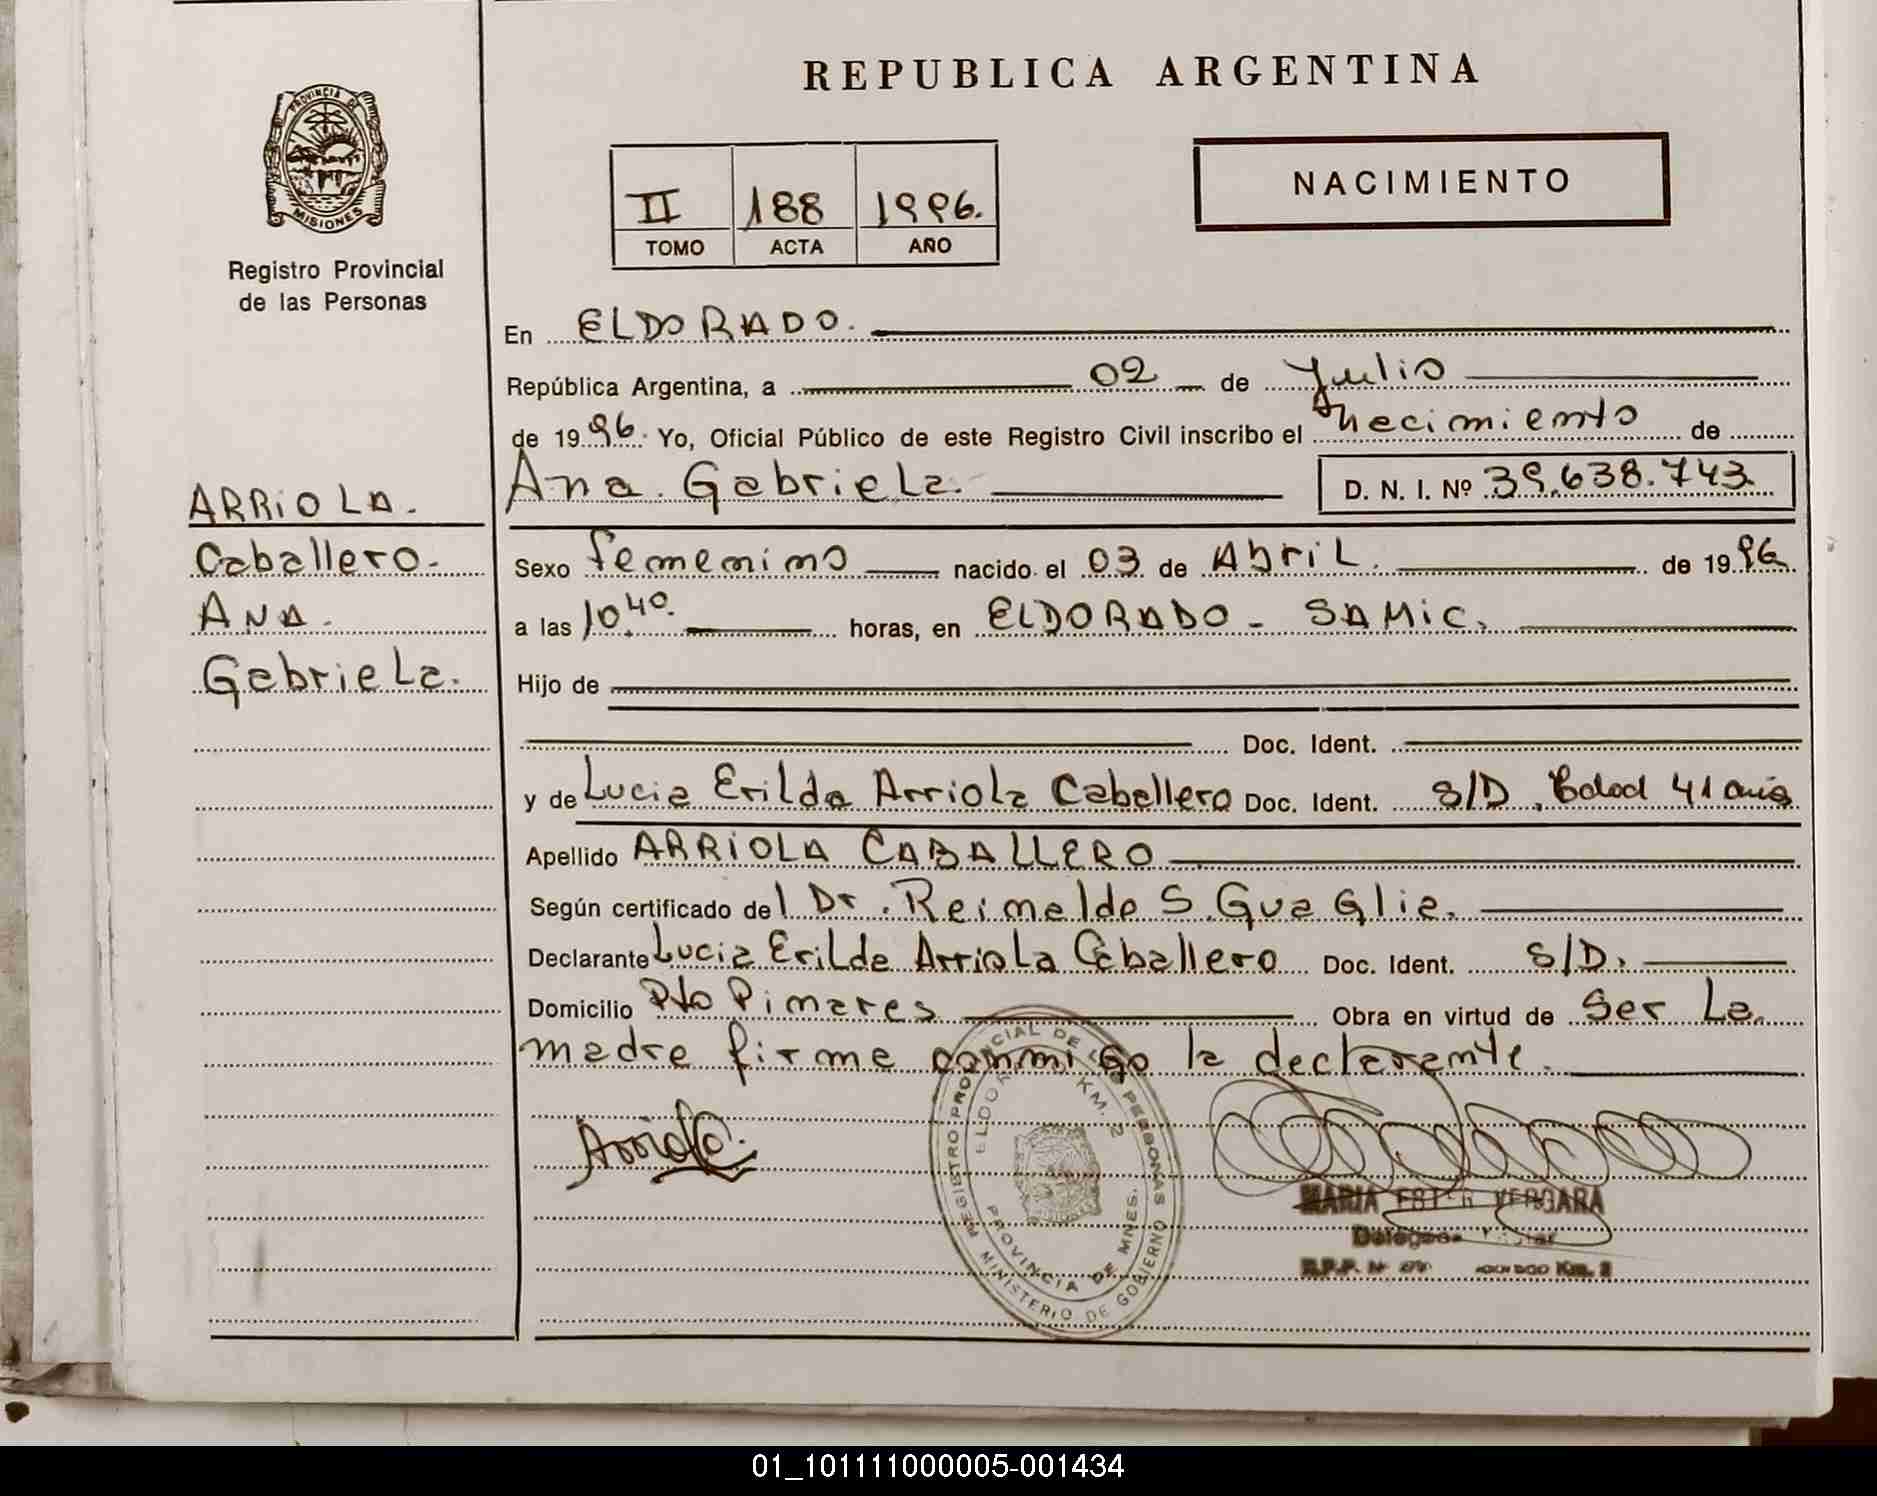 REPUBLICA ARGENTINA
PROVINCIA DE
MISIONES
Registro Provincial
de las Personas
II 188 1996.
TOMO ACTA AÑO
NACIMIENTO
En ELDORADO.
República Argentina, a 02 de Julio
de 1996. Yo, Oficial Público de este Registro Civil inscribo el necimiento de
Ana Gabriela. D. N. I. Nº 39.638.743
ARRIOLA.
Caballero.
ANA.
Gabriela.
Sexo femenino nacido el 03 de Abril. de 1996
a las 10,40. horas, en ELDORADO - SAMIC.
Hijo de
Doc. Ident.
y de Lucia Erilda Arriola Caballero Doc. Ident. S/D. Edad 41 años
Apellido ARRIOLA CABALLERO
Según certificado del Dr. Reinaldo S. Guaglia.
Declarante Lucia Erilda Arriola Caballero Doc. Ident. S/D.
Domicilio Pto Pinares Obra en virtud de Ser La
madre firma conmigo la declarante.
Arriola
REGISTRO PROVINCIAL DE LAS PERSONAS
ELDORADO KM. 2
PROVINCIA DE MNES.
MINISTERIO DE GOBIERNO
MARIA ESTER VERGARA
Delegada Titular
R.P.P. Nº Km. 2
01_101111000005-001434